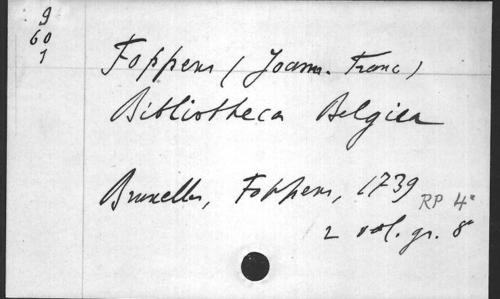 9
60
1
Foppens (Joann. Franc)
Bibliotheca Belgica
Bruxelles, Foppens, 1739
RP 4°
2 vol. gr. 8°